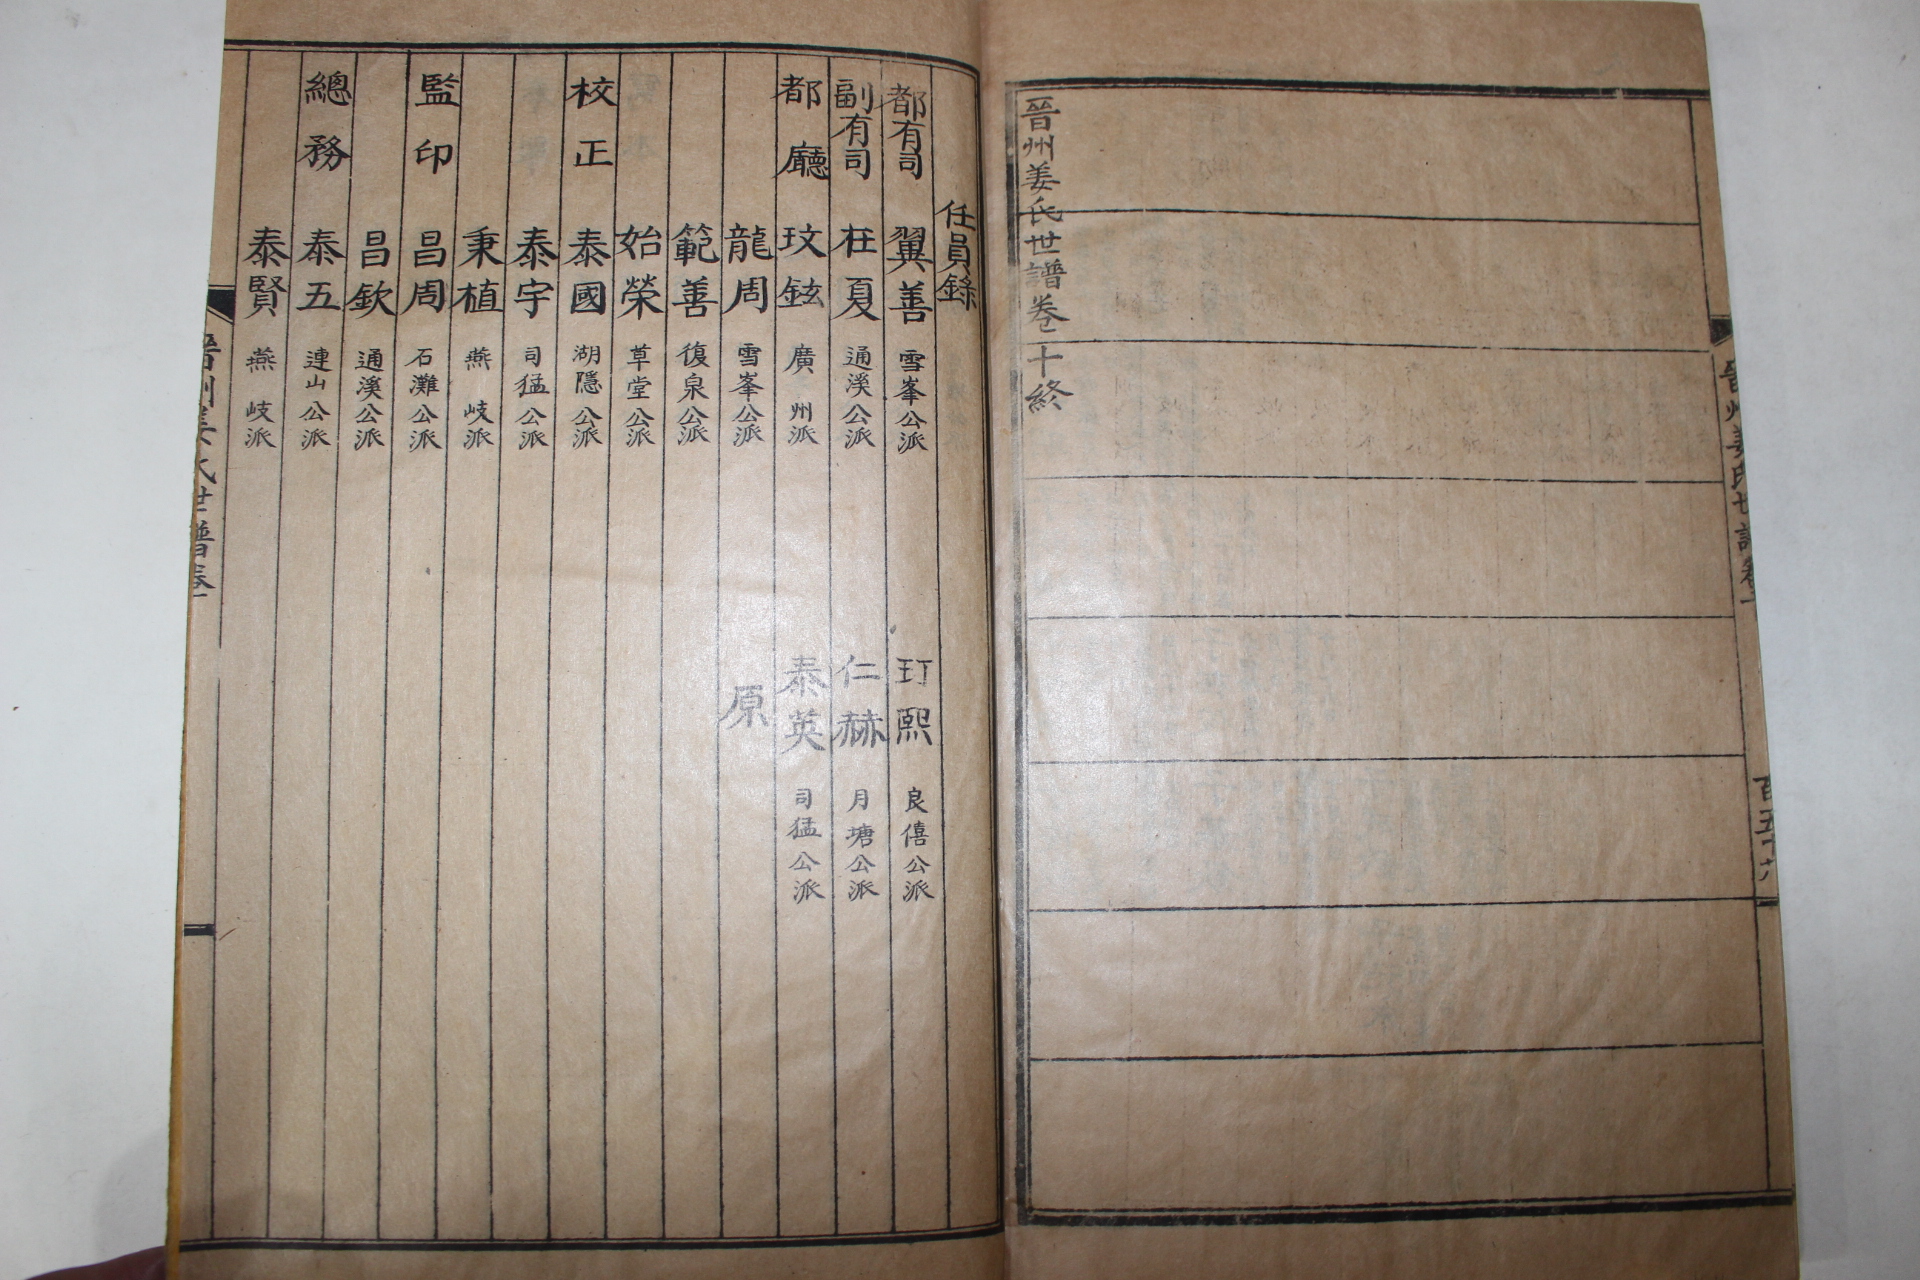 晉州姜氏世譜卷二十終
任員錄
都有司 翼善 雪峯公派 玎熙 良僖公派
副有司 枉夏 通溪公派 仁赫 月塘公派
都廳 玟鉉 廣州派 泰英 司猛公派
龍周 雪峯公派 原
範善 復泉公派
始榮 草堂公派
校正 泰國 湖隱公派
泰宇 司猛公派
秉植 燕岐派
監印 昌周 石灘公派
昌欽 通溪公派
總務 泰五 連山公派
泰賢 燕岐派